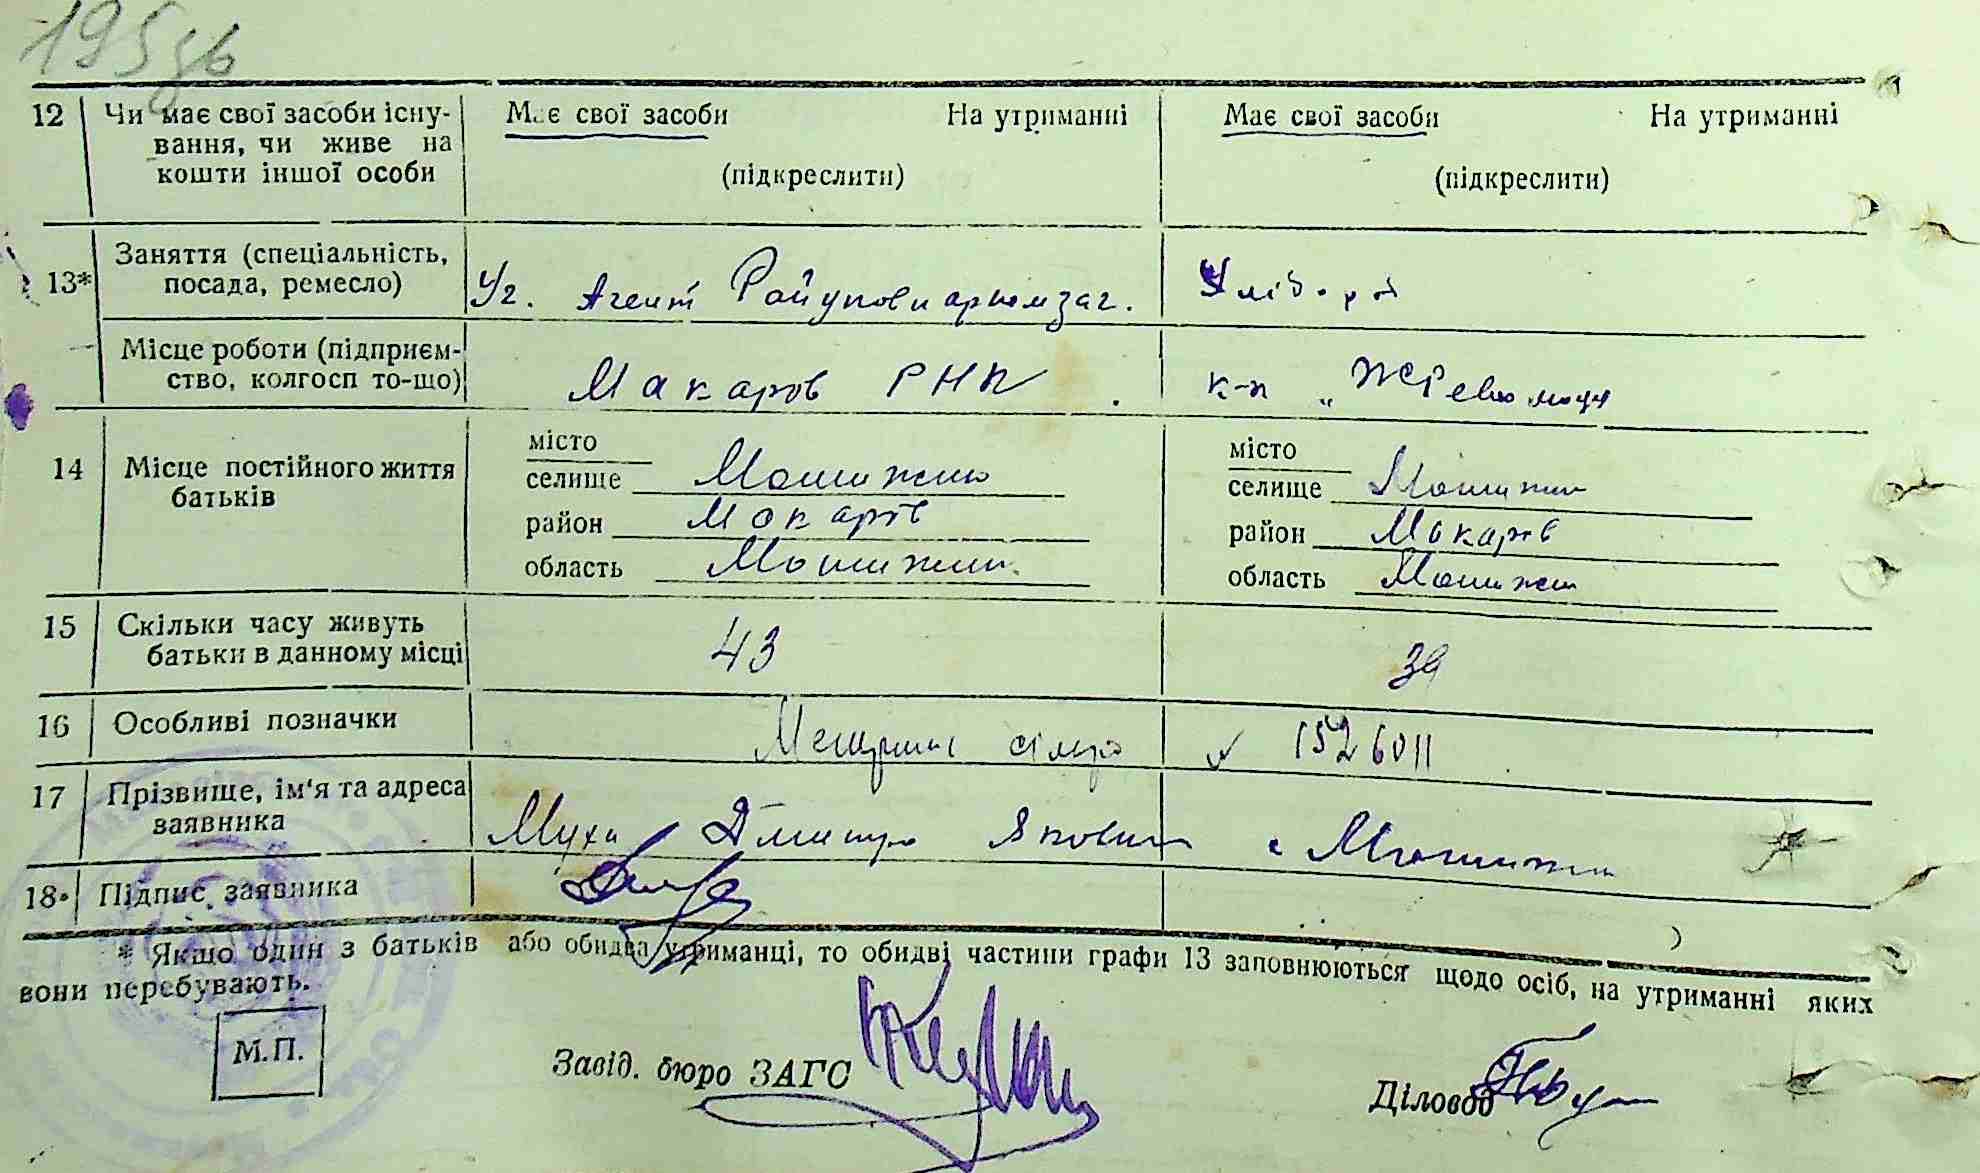 195зв
12 Чи має свої засоби існу- Має свої засоби На утриманні Має свої засоби На утриманні
вання, чи живе на
кошти іншої особи (підкреслити) (підкреслити)
Заняття (спеціальність,
13* посада, ремесло) Уг. Агент Хлібороб
Місце роботи (підприєм-
ство, колгосп то-що) Макарів РНК к-п „ЖРеволюци
14 Місце постійного життя
батьків
місто місто
селище Мотижин селище Мотижин
район Макарів район Макарів
область Мотижин область Мотижин
15 Скільки часу живуть
батьки в данному місці 43 39
16 Особливі позначки 1526011
17 Прізвище, ім'я та адреса
заявника Муха Дмитро Якович с Мотижин
18* Підпис заявника
* Якщо один з батьків або обидва утриманці, то обидві частини графи 13 заповнюються щодо осіб, на утриманні яких
вони перебувають.
М.П.
Завід. бюро ЗАГС
Діловод